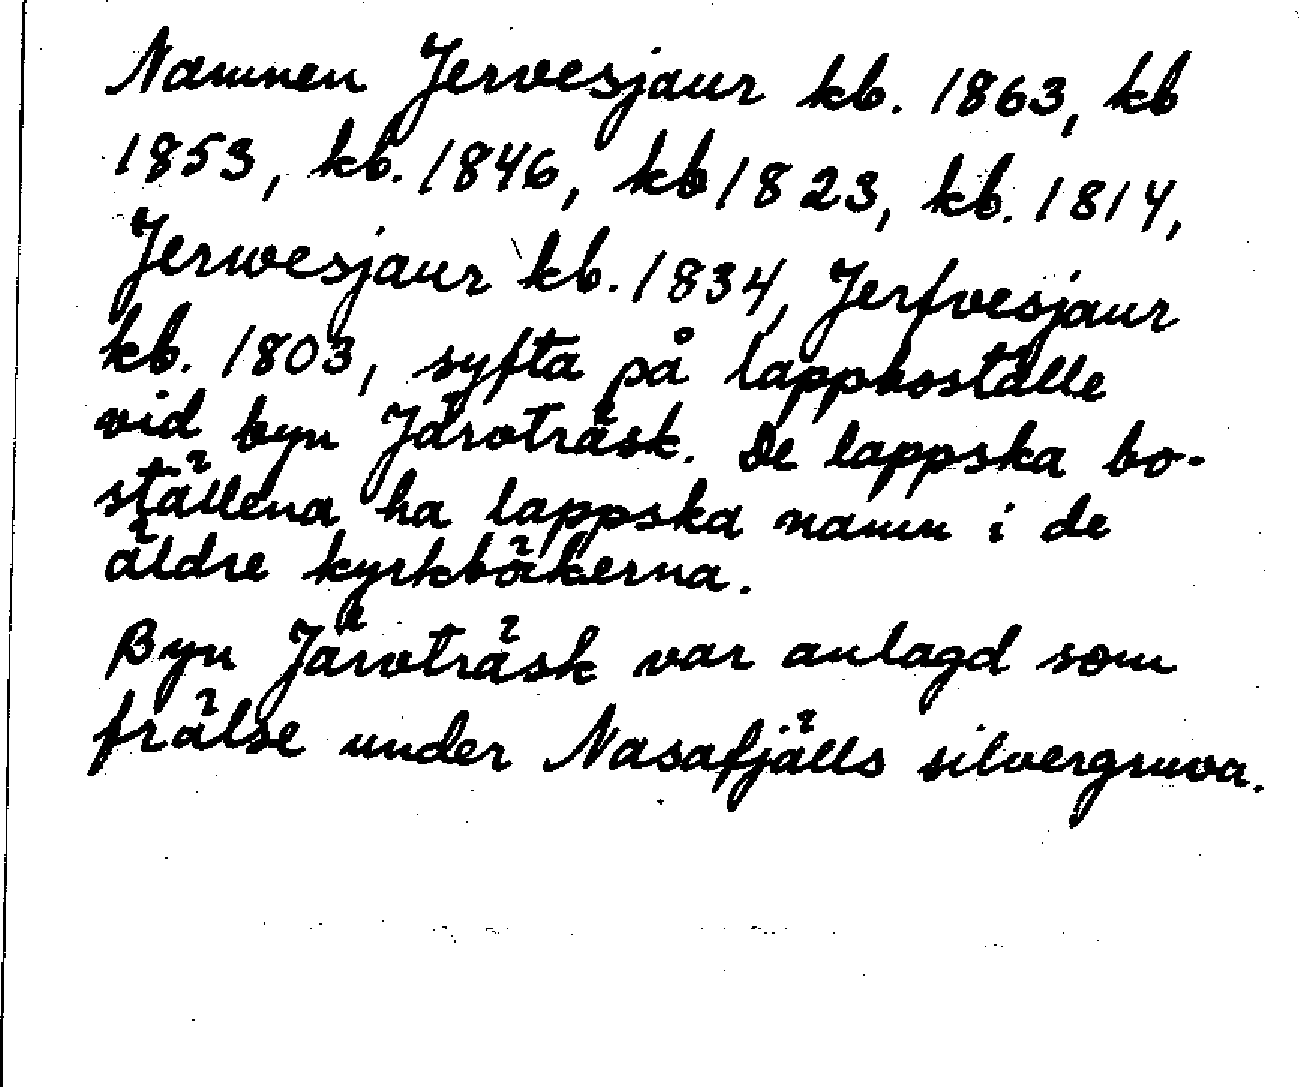 Namnen Jervesjaur kb. 1863, kb
1853, kb. 1846, kb 1823, kb. 1814,
Jerwesjaur kb. 1834, Jerfvesjaur
kb. 1803, syfta på lappboställe
vid byn Järvträsk. De lappska bo-
ställena ha lappska namn i de
äldre kyrkböckerna.
Byn Järvträsk var anlagd som
frälse under Nasafjälls silvergruva.